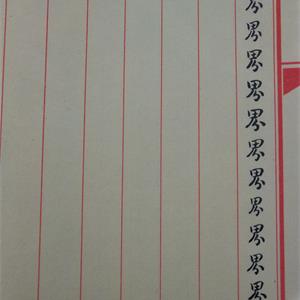 界界界界界界界界界界